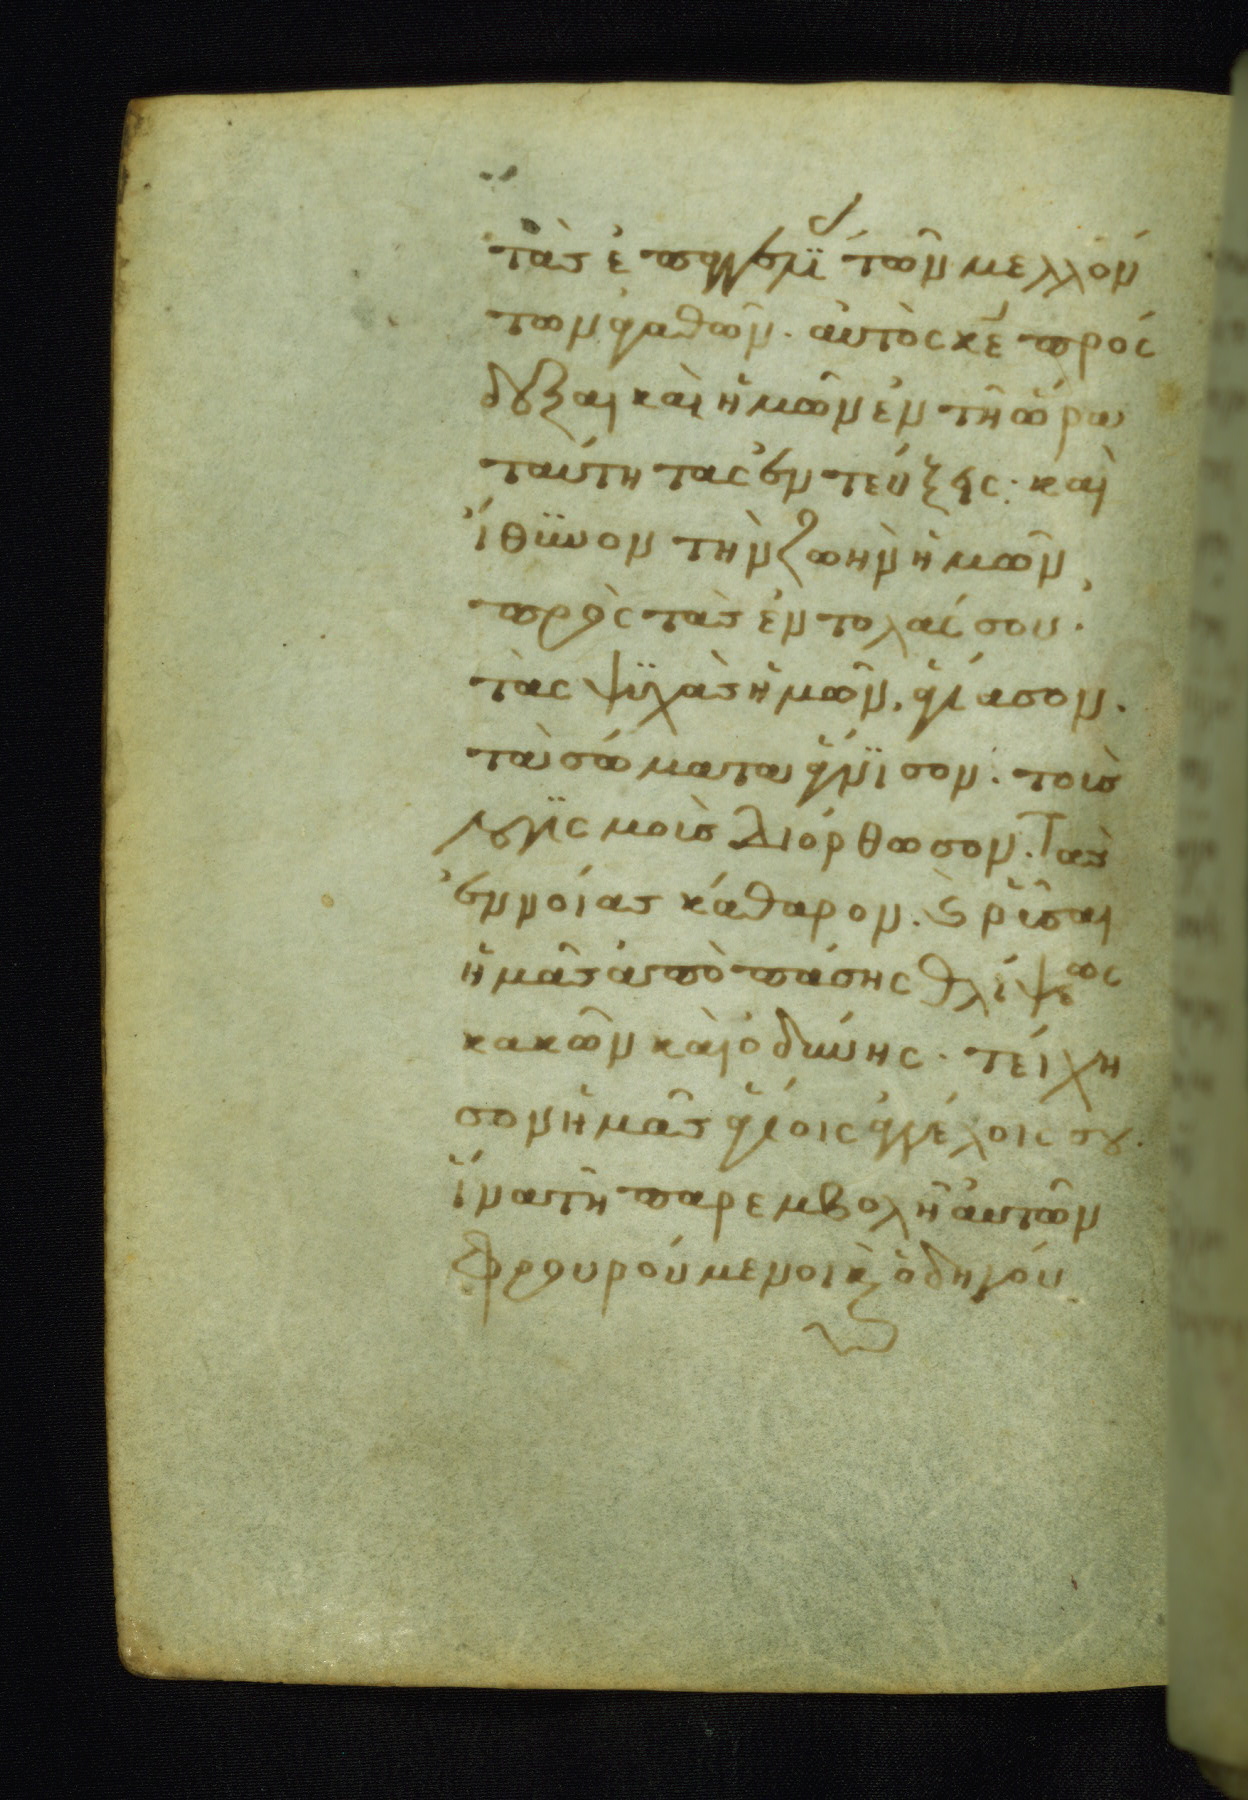 τὰς ἐπαγγελϊ τῶν μελλόν
των ἀγαθῶν. ἀυτὸς κε πρόσ
δεξαι καὶ ἡμῶν ἐν τῆ ὥρα
ταύτη τὰς ἐντεύξεις. καὶ
ἴθϋνον τὴν ζωὴν ἡμῶν
πρὸς τὰς ἐντολάς σου.
τὰς ψϋχὰς ἡμῶν. ἁγίασον.
τὰ σώματα ἅγνϊσον. τοὺς
λογϊσμοὺς διόρθωσον. Τὰς
ἐννοίας κάθαρον. ϗ ρῦσαι
ἡμᾶς ἀπὸ πάσης θλίψεως
κακῶν καὶ ὀδύνης. τείχη
σον ἡμᾶς ἁγίοις ἀγγέλοις σου.
ἵνα τῆ παρεμβολῆ ἀυτῶν
φρουρούμενοι ϗ ὁδηγού